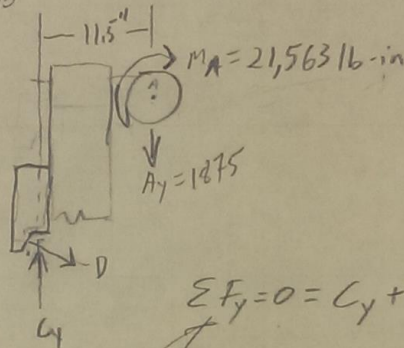 11.5"
MA = 21,563 lb-in
A
Ay = 1875
D
ΣFy = 0 = Cy +
Cy